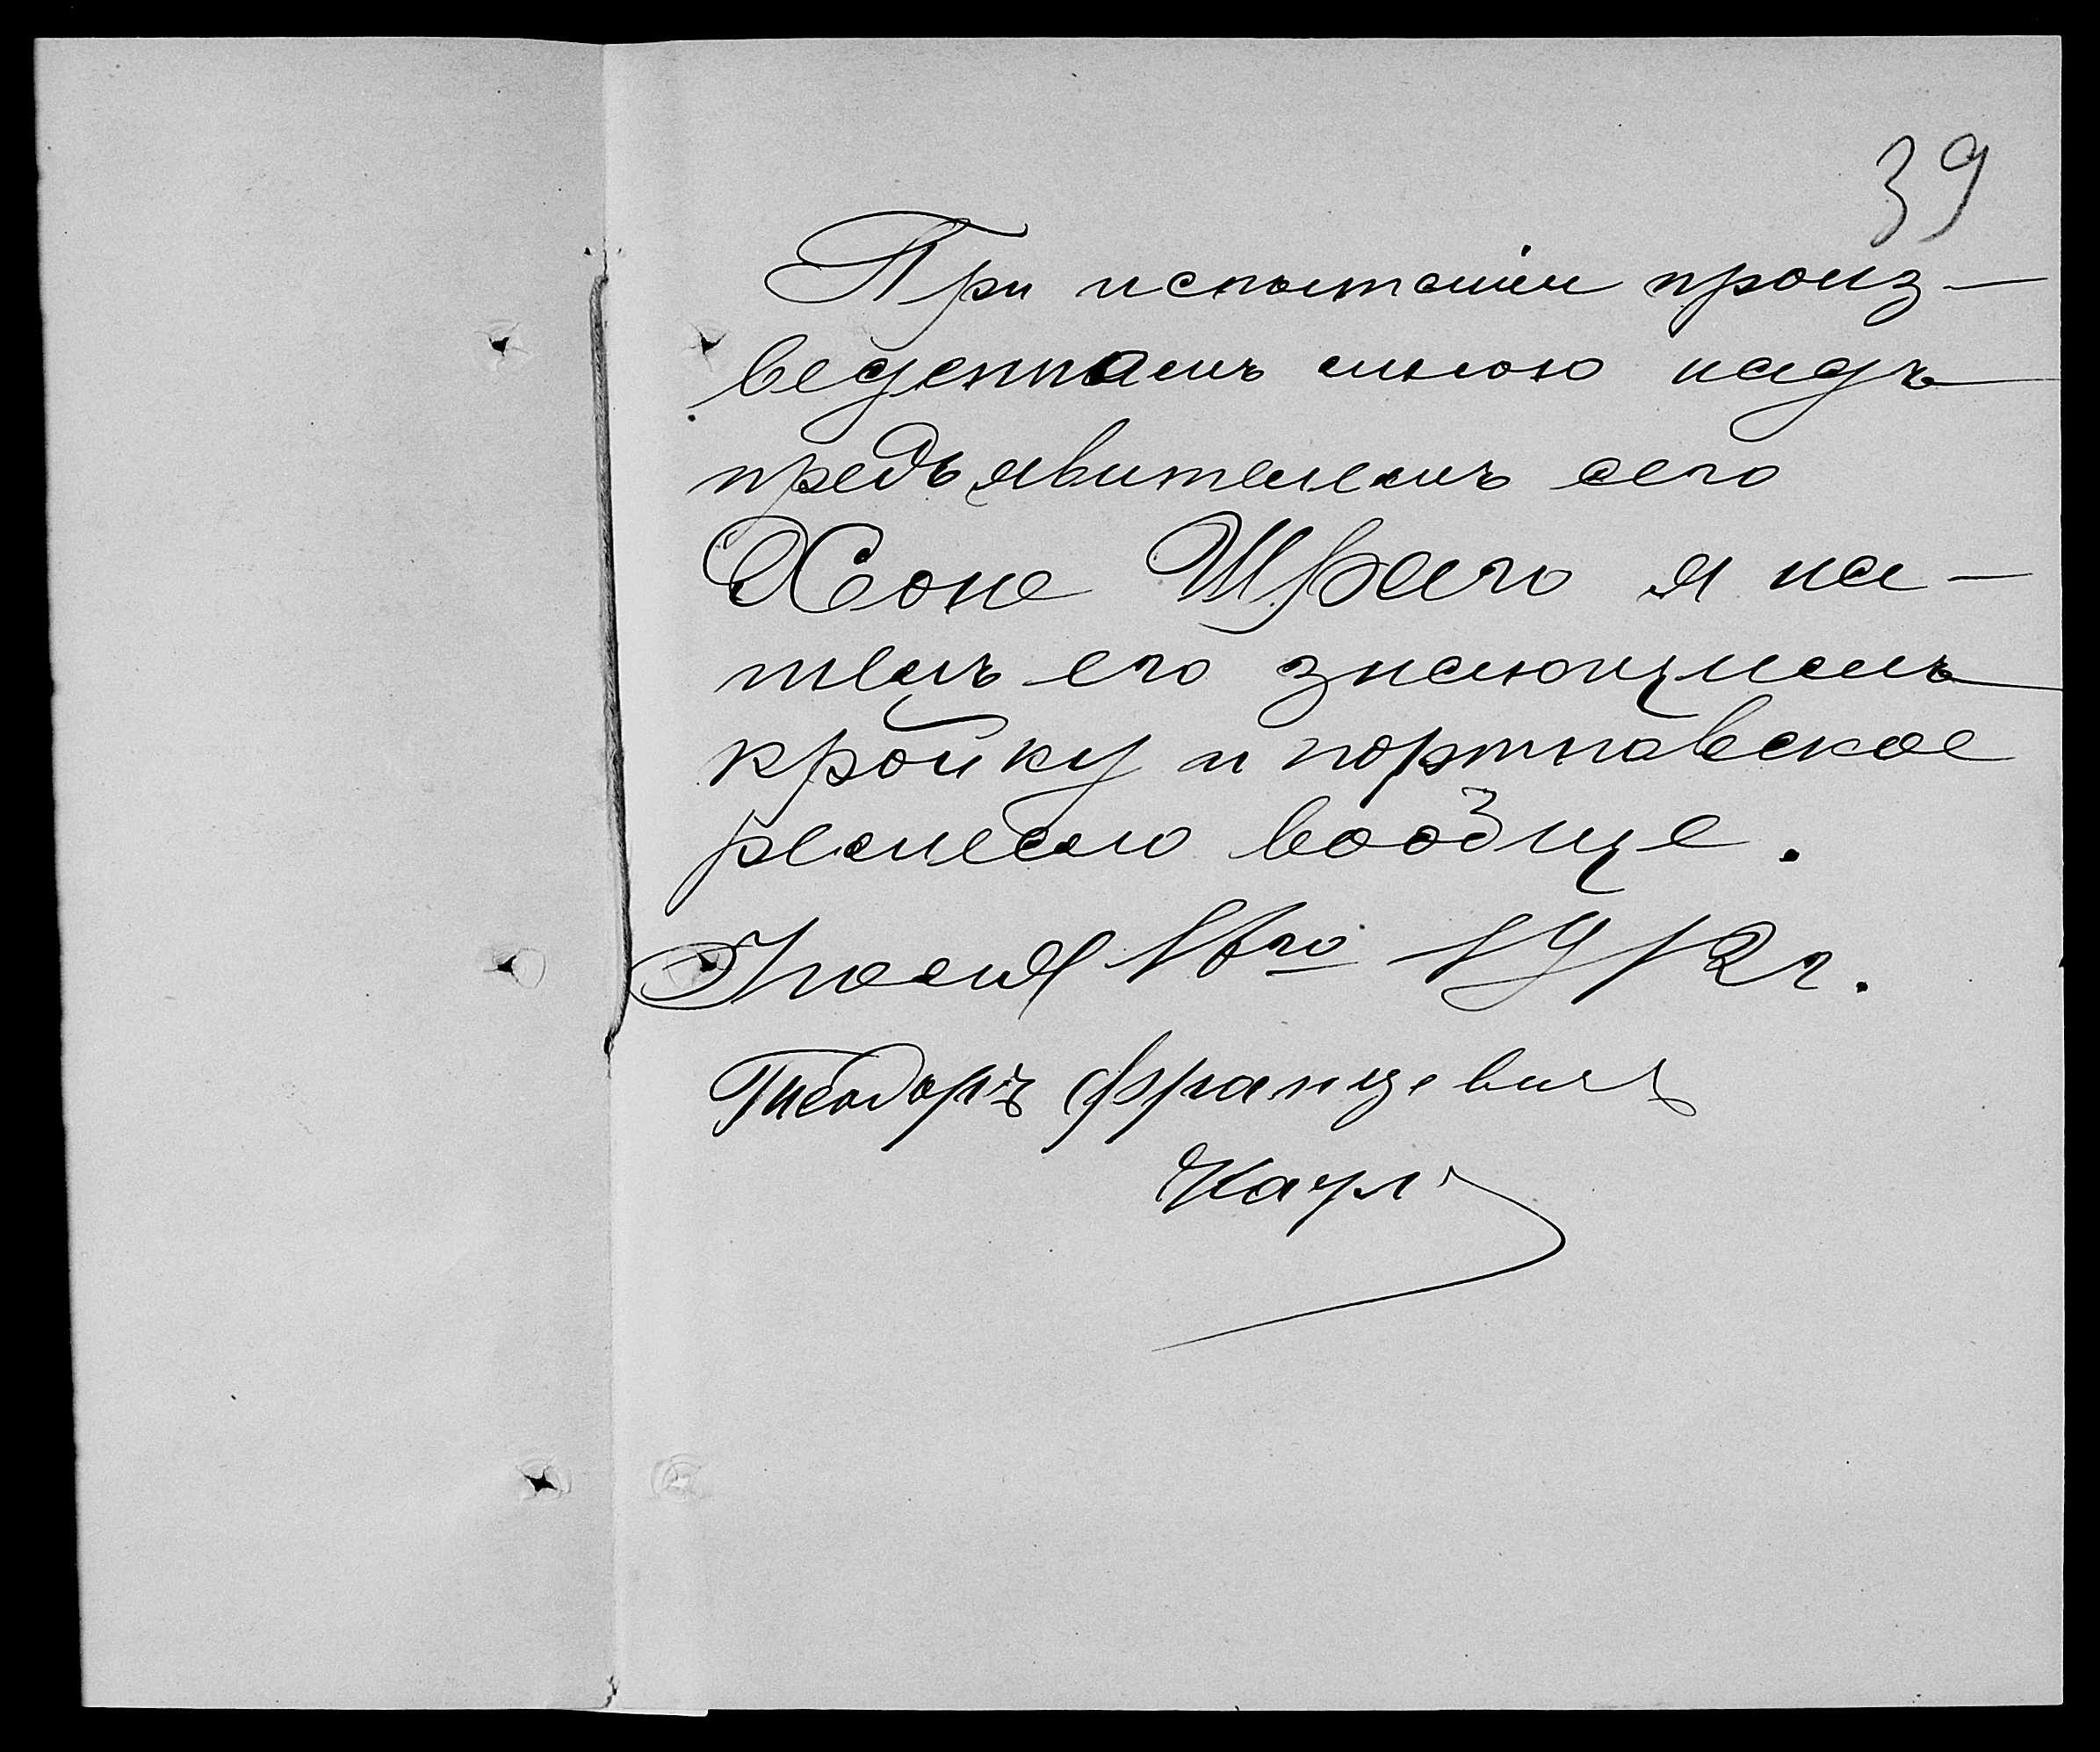 39
При испытанiи произ-
веденномъ мною надъ
предъявителемъ сего
Хоне Шраго я на-
шелъ его знающимъ
кройку и портновское
ремесло вообще.
Iюля 16го 1912 г.
Теодоръ Францевичъ